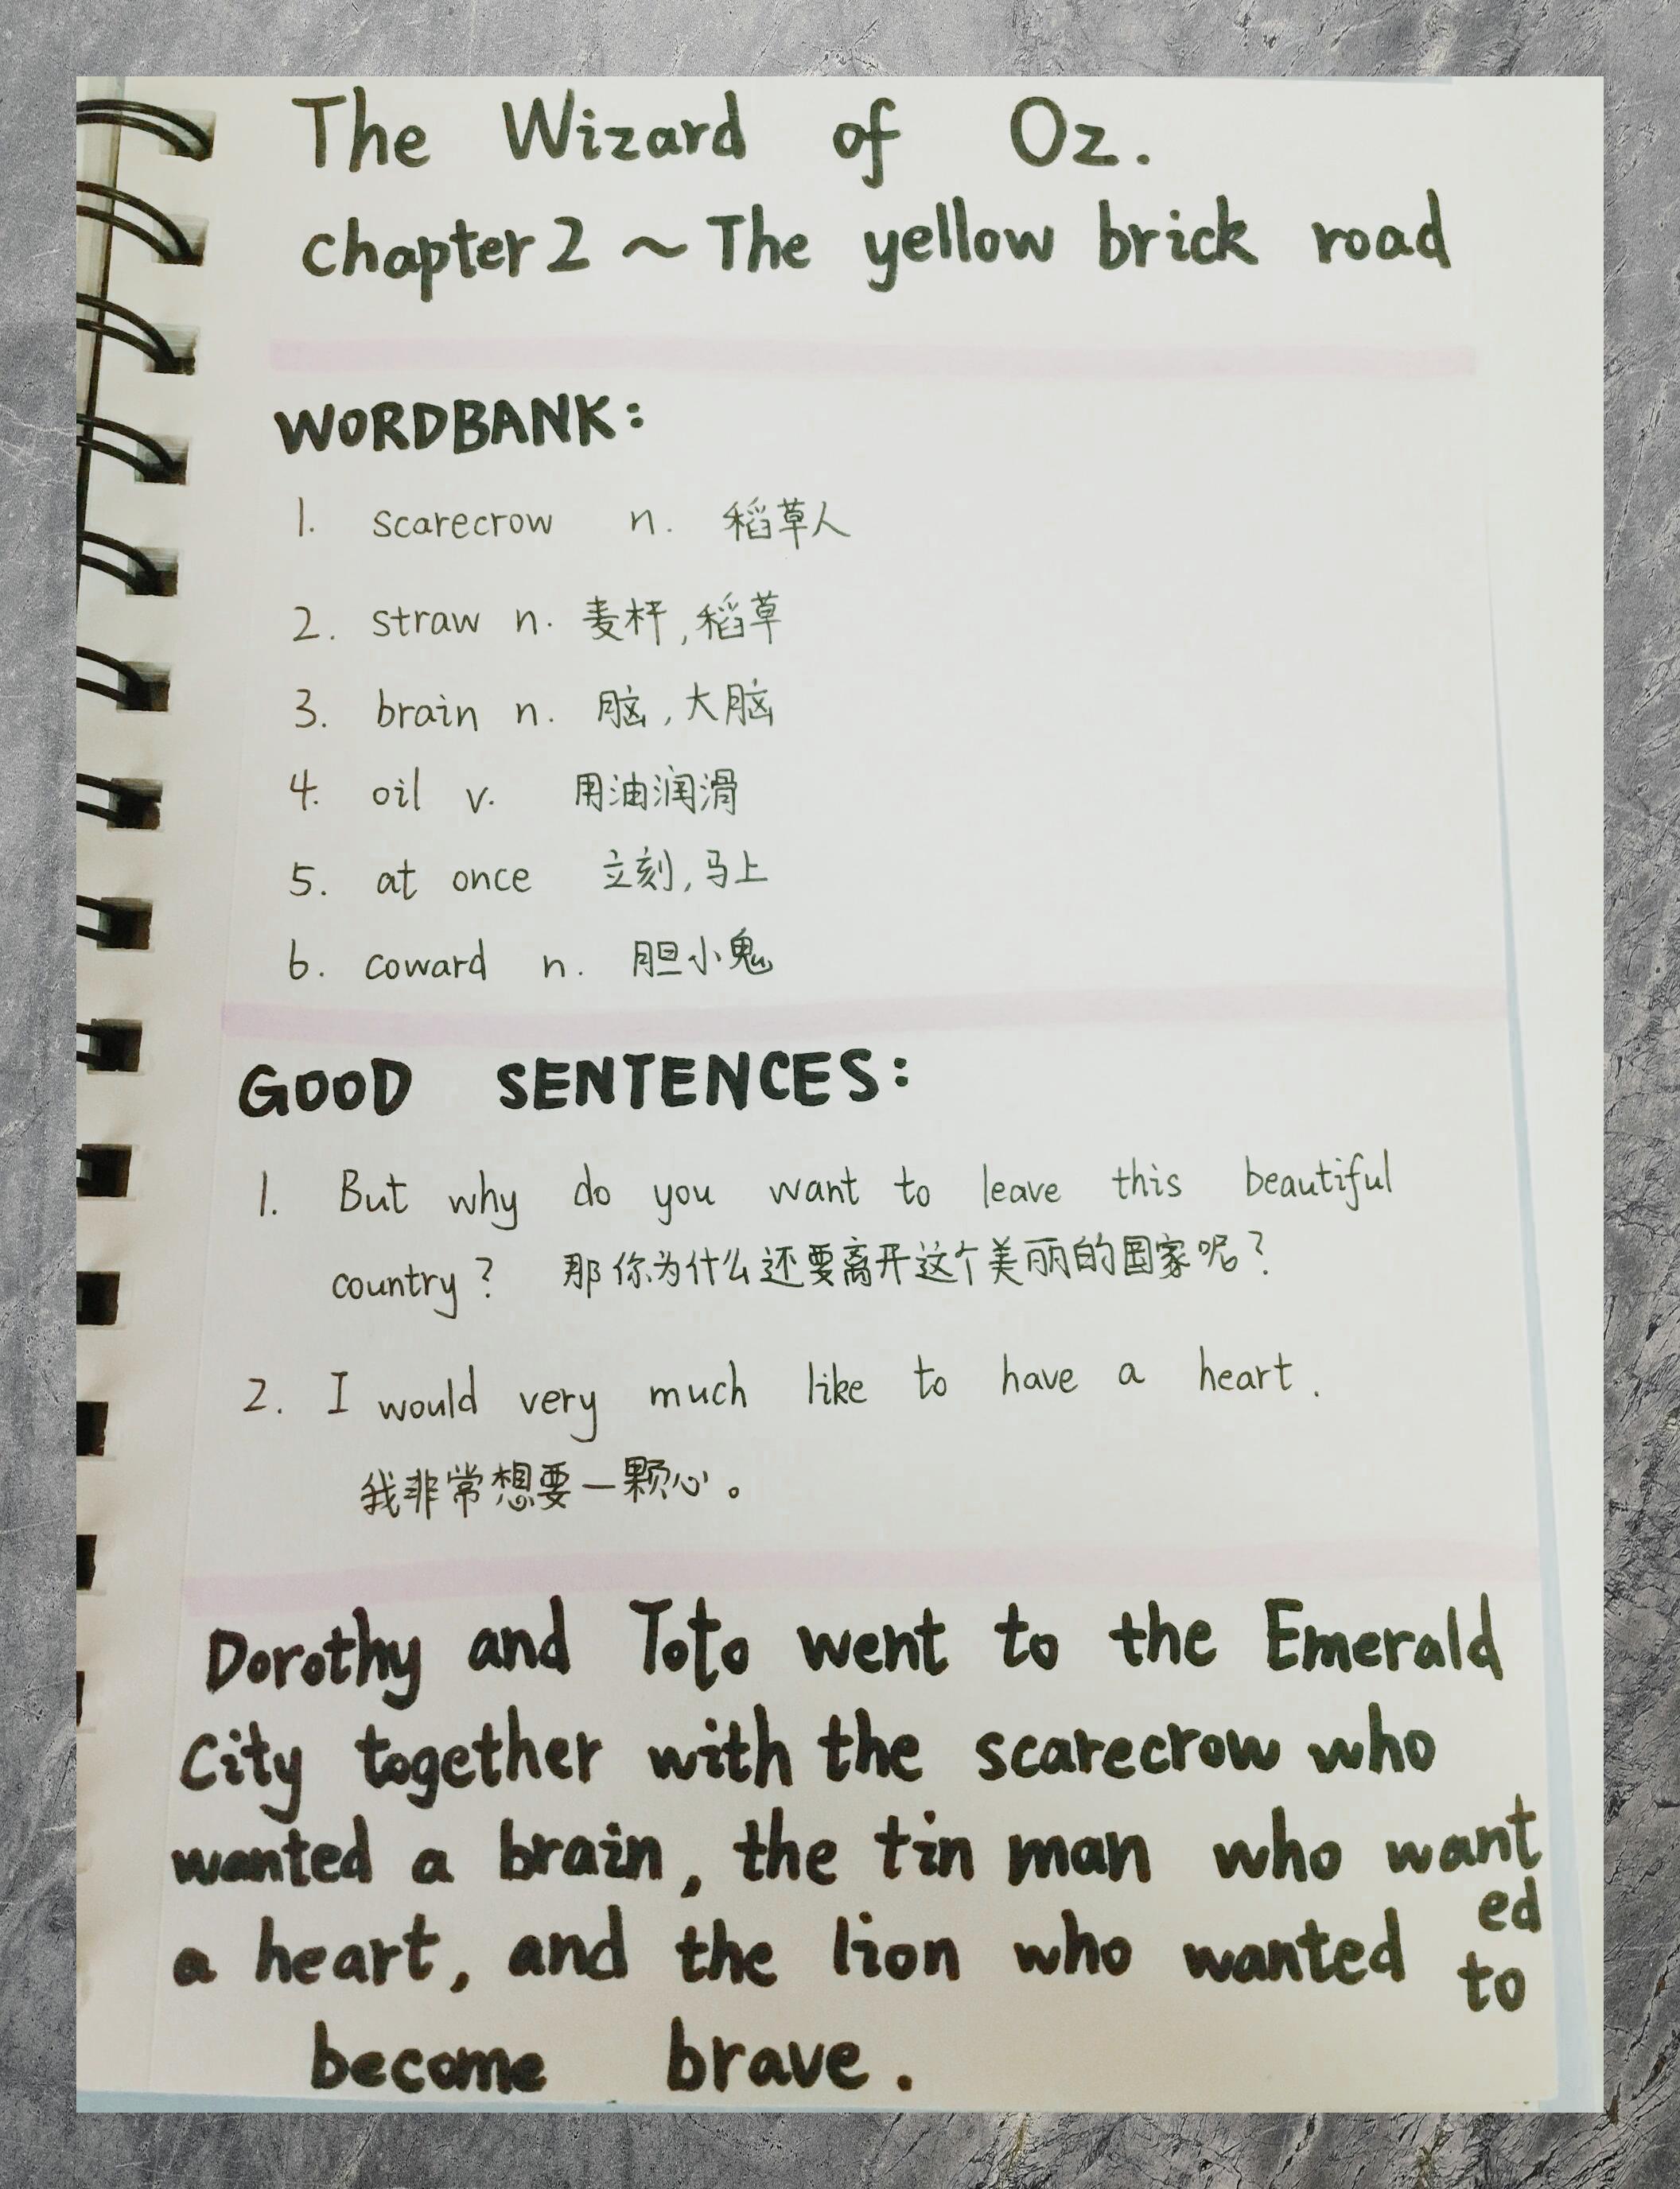 The Wizard of Oz.
chapter 2 ~ The yellow brick road
WORDBANK:
1. scarecrow n. 稻草人
2. straw n. 麦杆,稻草
3. brain n. 脑,大脑
4. oil v. 用油润滑
5. at once 立刻,马上
6. coward n. 胆小鬼
GOOD SENTENCES:
1. But why do you want to leave this beautiful
country? 那你为什么还要离开这个美丽的国家呢?
2. I would very much like to have a heart.
我非常想要一颗心。
Dorothy and Toto went to the Emerald
City together with the scarecrow who
wanted a brain, the tin man who want
ed
a heart, and the lion who wanted to
become brave.